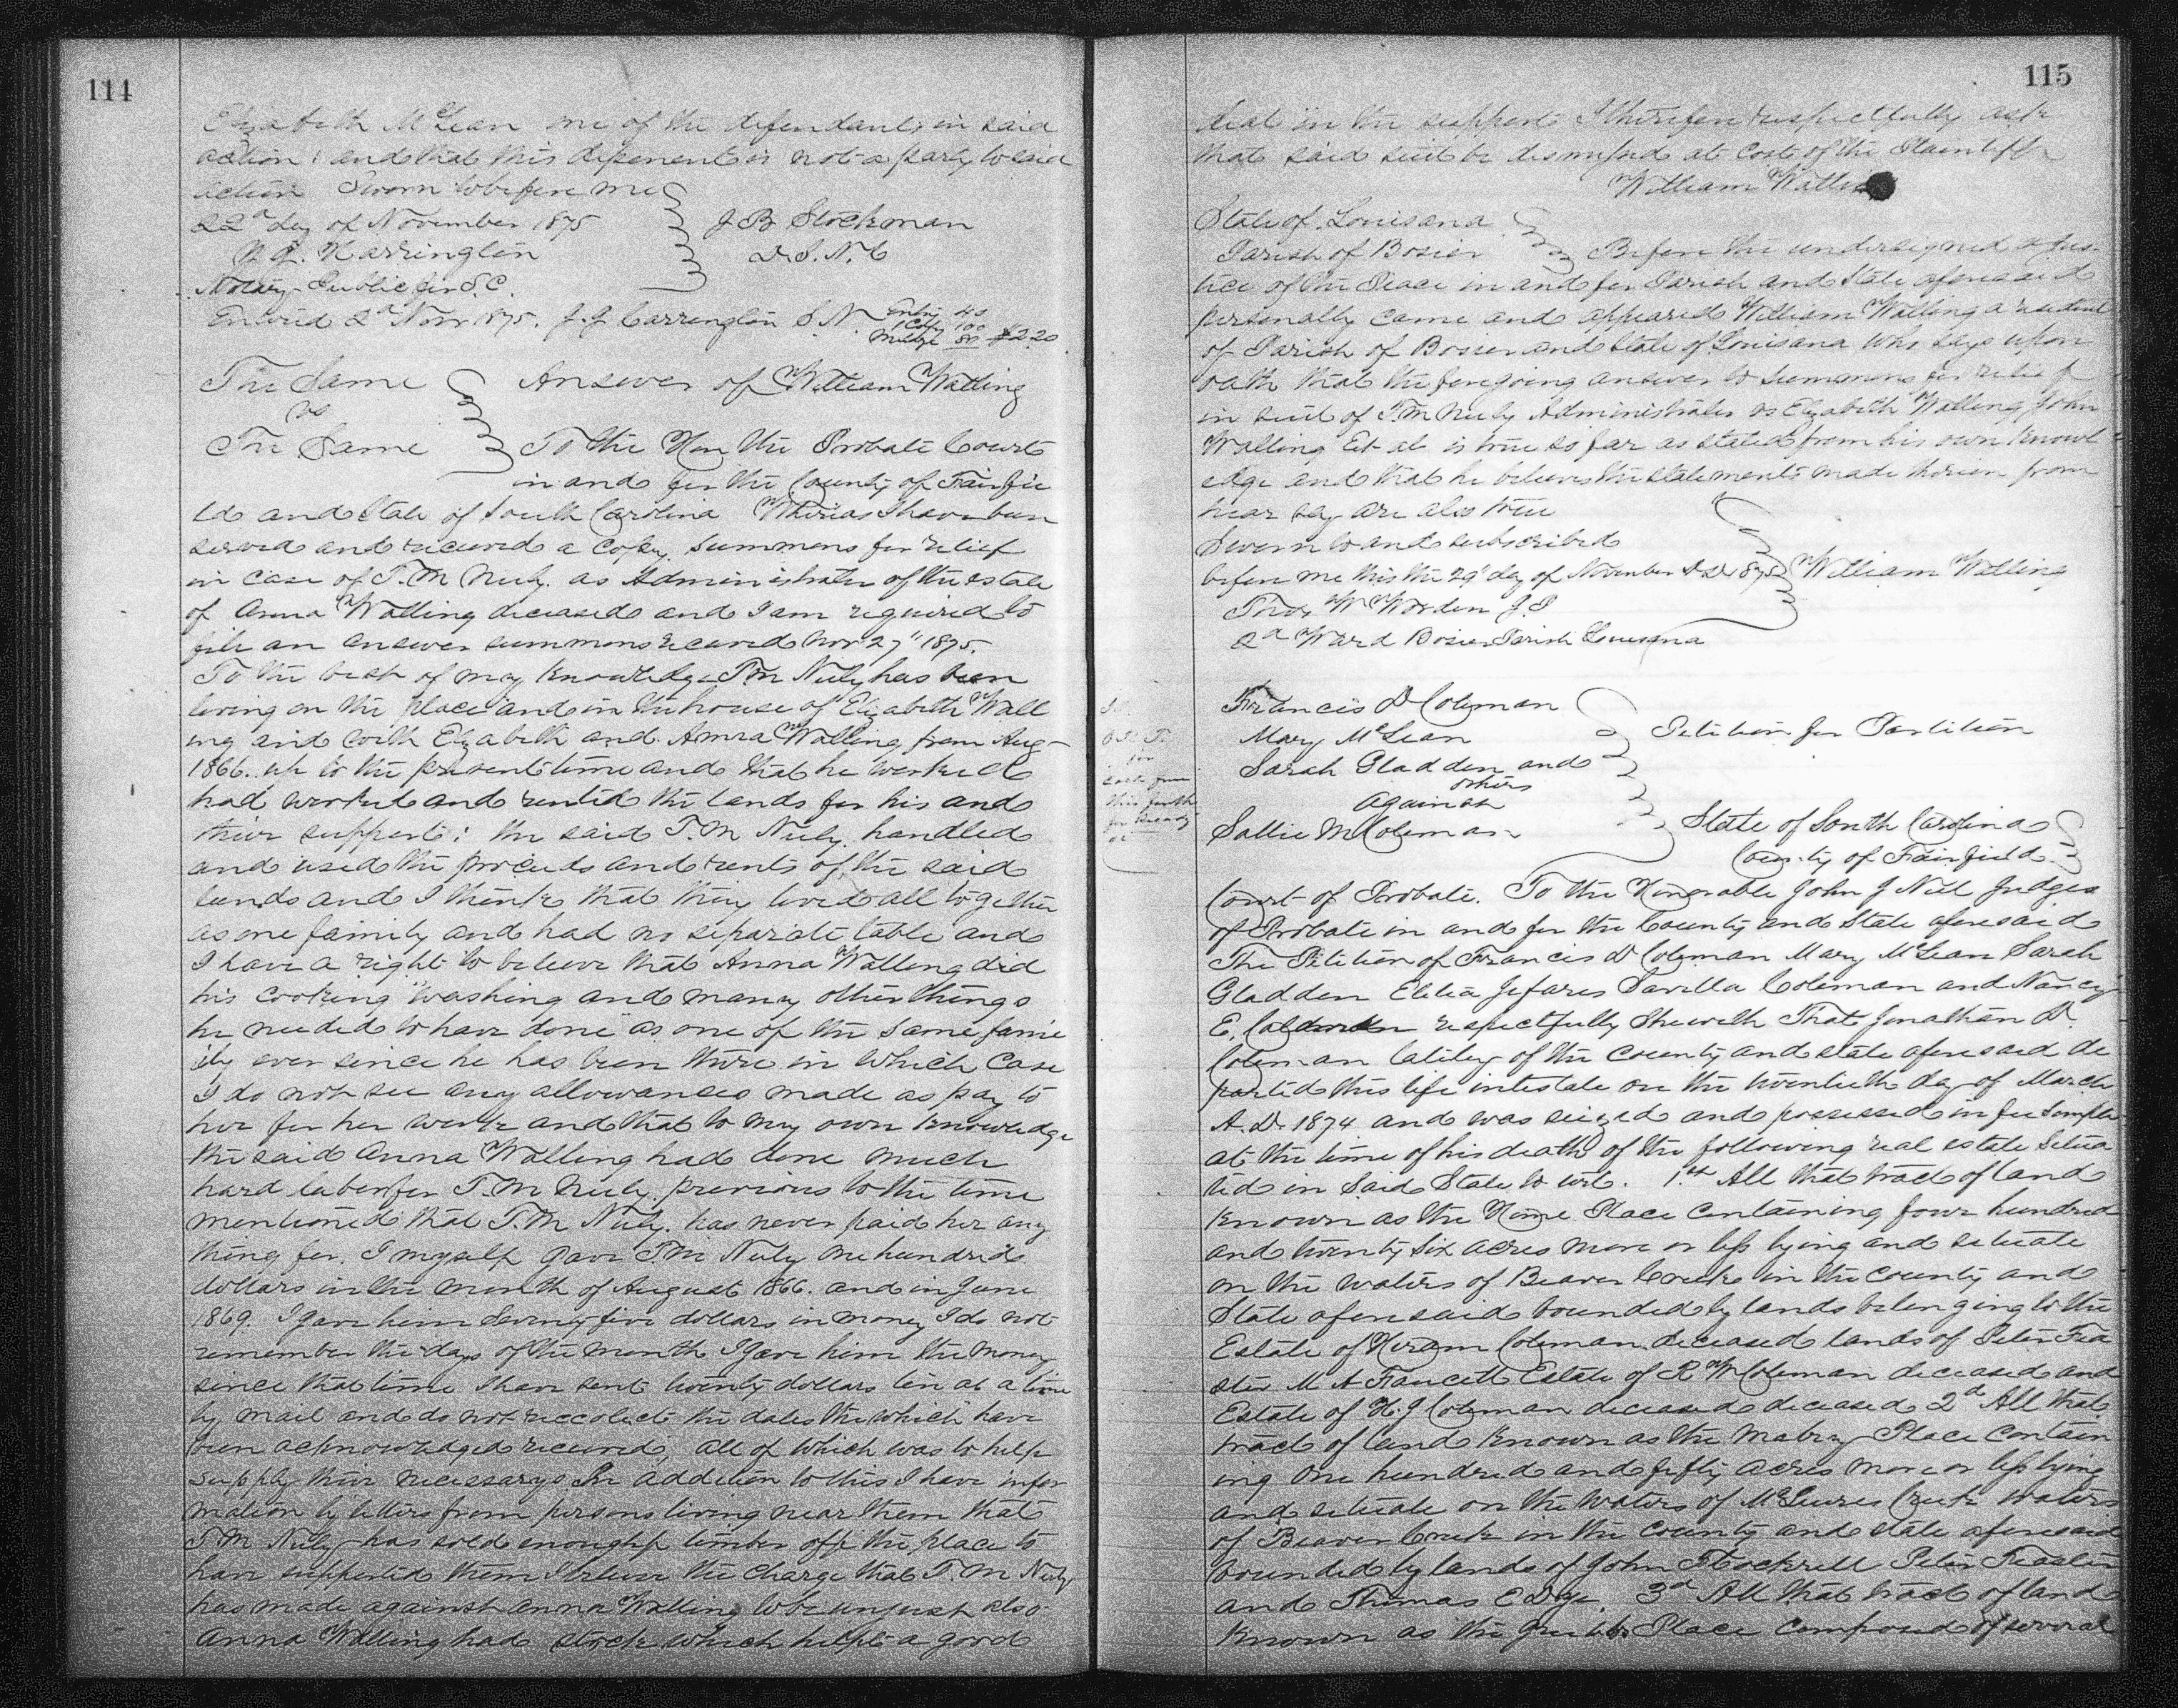 114
Elizabeth McLean one of the defendants in said
action: and that this deponent is not a party to said
action Sworn to before me
22d day of November 1875 J B Stockman
Harrington D.S.N.C
Notary Public for S.C.
Entered 2d Novr 1875. J. J. Carrington S.N. Entry 40
1 Copy 100
Mileage 80 $2.20
The Same Answer of William Walling
vs
The Same To the Hon the Probate Court
in and for the County of Fairfie
ld and State of South Carolina Whereas I have been
served and received a Copy Summons for relief
in case of T. M Neely. as Administrator of the estate
of Anna Walling deceased and I am required to
file an answer summons received Nov 27" 1875.
To the best of my knowledge T.M Neely has been
living on the place and in the house of Elizabeth Wall
ing and with Elizabeth and Anna Walling from Aug-
1866. up to the present time and that he worked &
had worked and rented the lands for his and
their support: the said T. M Neely. handled
and used the proceeds and rents of the said
lands and I think that they lived all together
as one family and had no separate table and
I have a right to believe that Anna Walling did
his cooking washing and many other things
he needed to have done as one of the same fami
ily ever since he has been there in which case
I do not see any allowances made as pay to
her for her work and that to my own knowledge
the said Anna Walling had done much
hard labor for T. M Neely. previous to the time
mentioned that T. M Neely. has never paid her any
thing for. I myself gave T.M. Neely one hundred
dollars in the month of August 1866. and in June
1869. I gave him Seventy five dollars in money I do not
remember the days of the month I gave him the money
since that time I have sent twenty dollars ten at a time
by mail and do not reccolect the dates the which have
been acknowledged received, all of which was to help
supply their necessarys In addition to this I have infor
mation by letters from persons living near them that
T M Neely has sold enough timber off the place to
have supported them I believe the charge that T. M Neely
has made against Anna Walling to be unjust also
Anna Walling had stock which helpt a good
115
deal in the support I therefore respectfully ask
that said suit be dismissed at cost of the Plaintiff
William Walling
State of Louisana
Parish of Bosier Before the undersigned a Jus-
tice of the Peace in and for Parish and State aforesaid
personally came and appeared William Walling a resident
of Parish of Bosier and State of Louisana who says upon
oath that the foregoing answer to summons for relief
in suit of T M Neely Administrator vs Elizabeth Walling John
Walling Et al is true so far as stated from his own knowl
edge and that he believes the statements made therein from
hear say are also true
Sworn to and subscribed
before me this the 29" day of November A D 1875 William Walling
Thos W Worden J. P
2d Ward Bosier Parish Louisana
Francis D Coleman
Mary McLean Petition for Partition
Sarah Gladden and
others
Against
Sallie M Coleman State of South Carolina
County of Fairfield
Court of Probate. To the Honorable John J Neil Judges
of Probate in and for the County and State aforesaid
The Petition of Francis D Coleman Mary McLean Sarah
Gladden Elitia Jefares Savilla Coleman and Nancy
E. respectfully sheweth That Jonathan D.
Coleman lately of the County and state aforesaid de
parted this life intestate on the twentieth day of March
A. D. 1874 and was seized and possessed in fee simple
at the time of his death of the following real estate Situa
ted in said State to wit. 1st All that tract of land
known as the Home Place containing four hundred
and twenty six acres more or less lying and situate
on the waters of Beaver Creek in the County and
State aforesaid bounded by lands belonging to the
Estate of Hiram Coleman deceased lands of Peter Fea
ster M A Faucett Estate of R W Coleman deceased and
Estate of H. J Coleman deceased deceased 2d All that
tract of land known as the Mabry Place contain
ing one hundred and fifty acres more or less lying
and situate on the waters of McLures Creek waters
of Beaver Creek in the County and state aforesaid
bounded by lands of John Feaster
and Thomas Edge. 3d All that tract of land
known as the Place composed of several